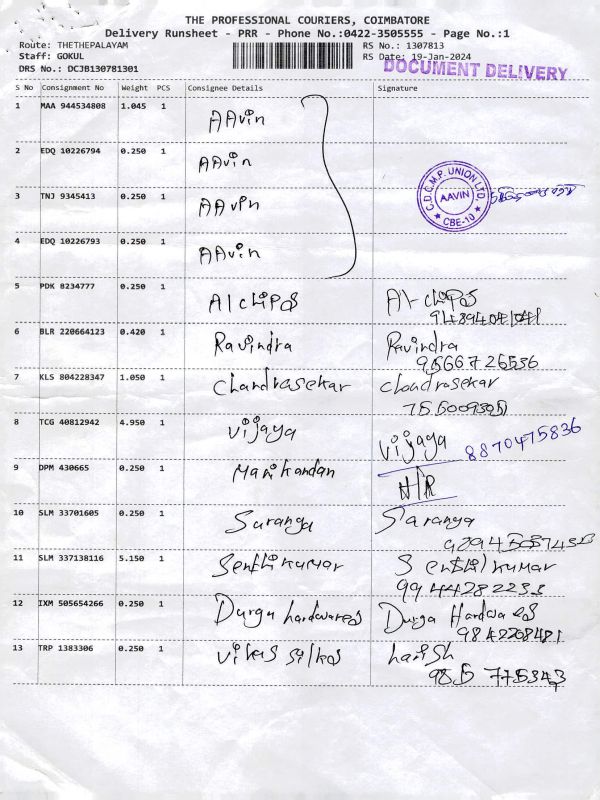 THE PROFESSIONAL COURIERS, COIMBATORE
Delivery Runsheet - PRR - Phone No.:0422-3505555 - Page No.:1
Route: THETHEPALAYAM RS No.: 1307813
Staff: GOKUL RS Date: 19-Jan-2024
DRS No.: DCJB130781301 DOCUMENT DELIVERY
S No Consignment No Weight PCS Consignee Details Signature
1 MAA 944534808 1.045 1 AAvin
2 EDQ 10226794 0.250 1 AAvin
C.D.C.M.P. UNION LTD. AAVIN CBE-10
3 TNJ 9345413 0.250 1 AAvin
4 EDQ 10226793 0.250 1 AAvin
5 PDK 8234777 0.250 1 A1 chips A1 chips
6 BLR 220664123 0.420 1 Ravindra Ravindra
9566726536
7 KLS 804228347 1.050 1 Chandrasekar chandrasekar
8 TCG 40812942 4.950 1 Vijaya Vijaya 8870475836
9 DPM 430665 0.250 1 Manikandan N/R
10 SLM 33701605 0.250 1 Saranga Saranga
11 SLM 337138116 5.150 1 Senthilkumar Senthilkumar
9944282233
12 IXM 505654266 0.250 1 Durga hardwares Durga Hardwares
9842208481
13 TRP 1383306 0.250 1 Vikas silks harish